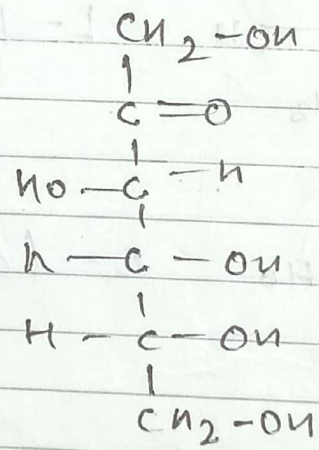 CH2-OH
|
C=O
|
HO-C-H
|
H-C-OH
|
H-C-OH
|
CH2-OH